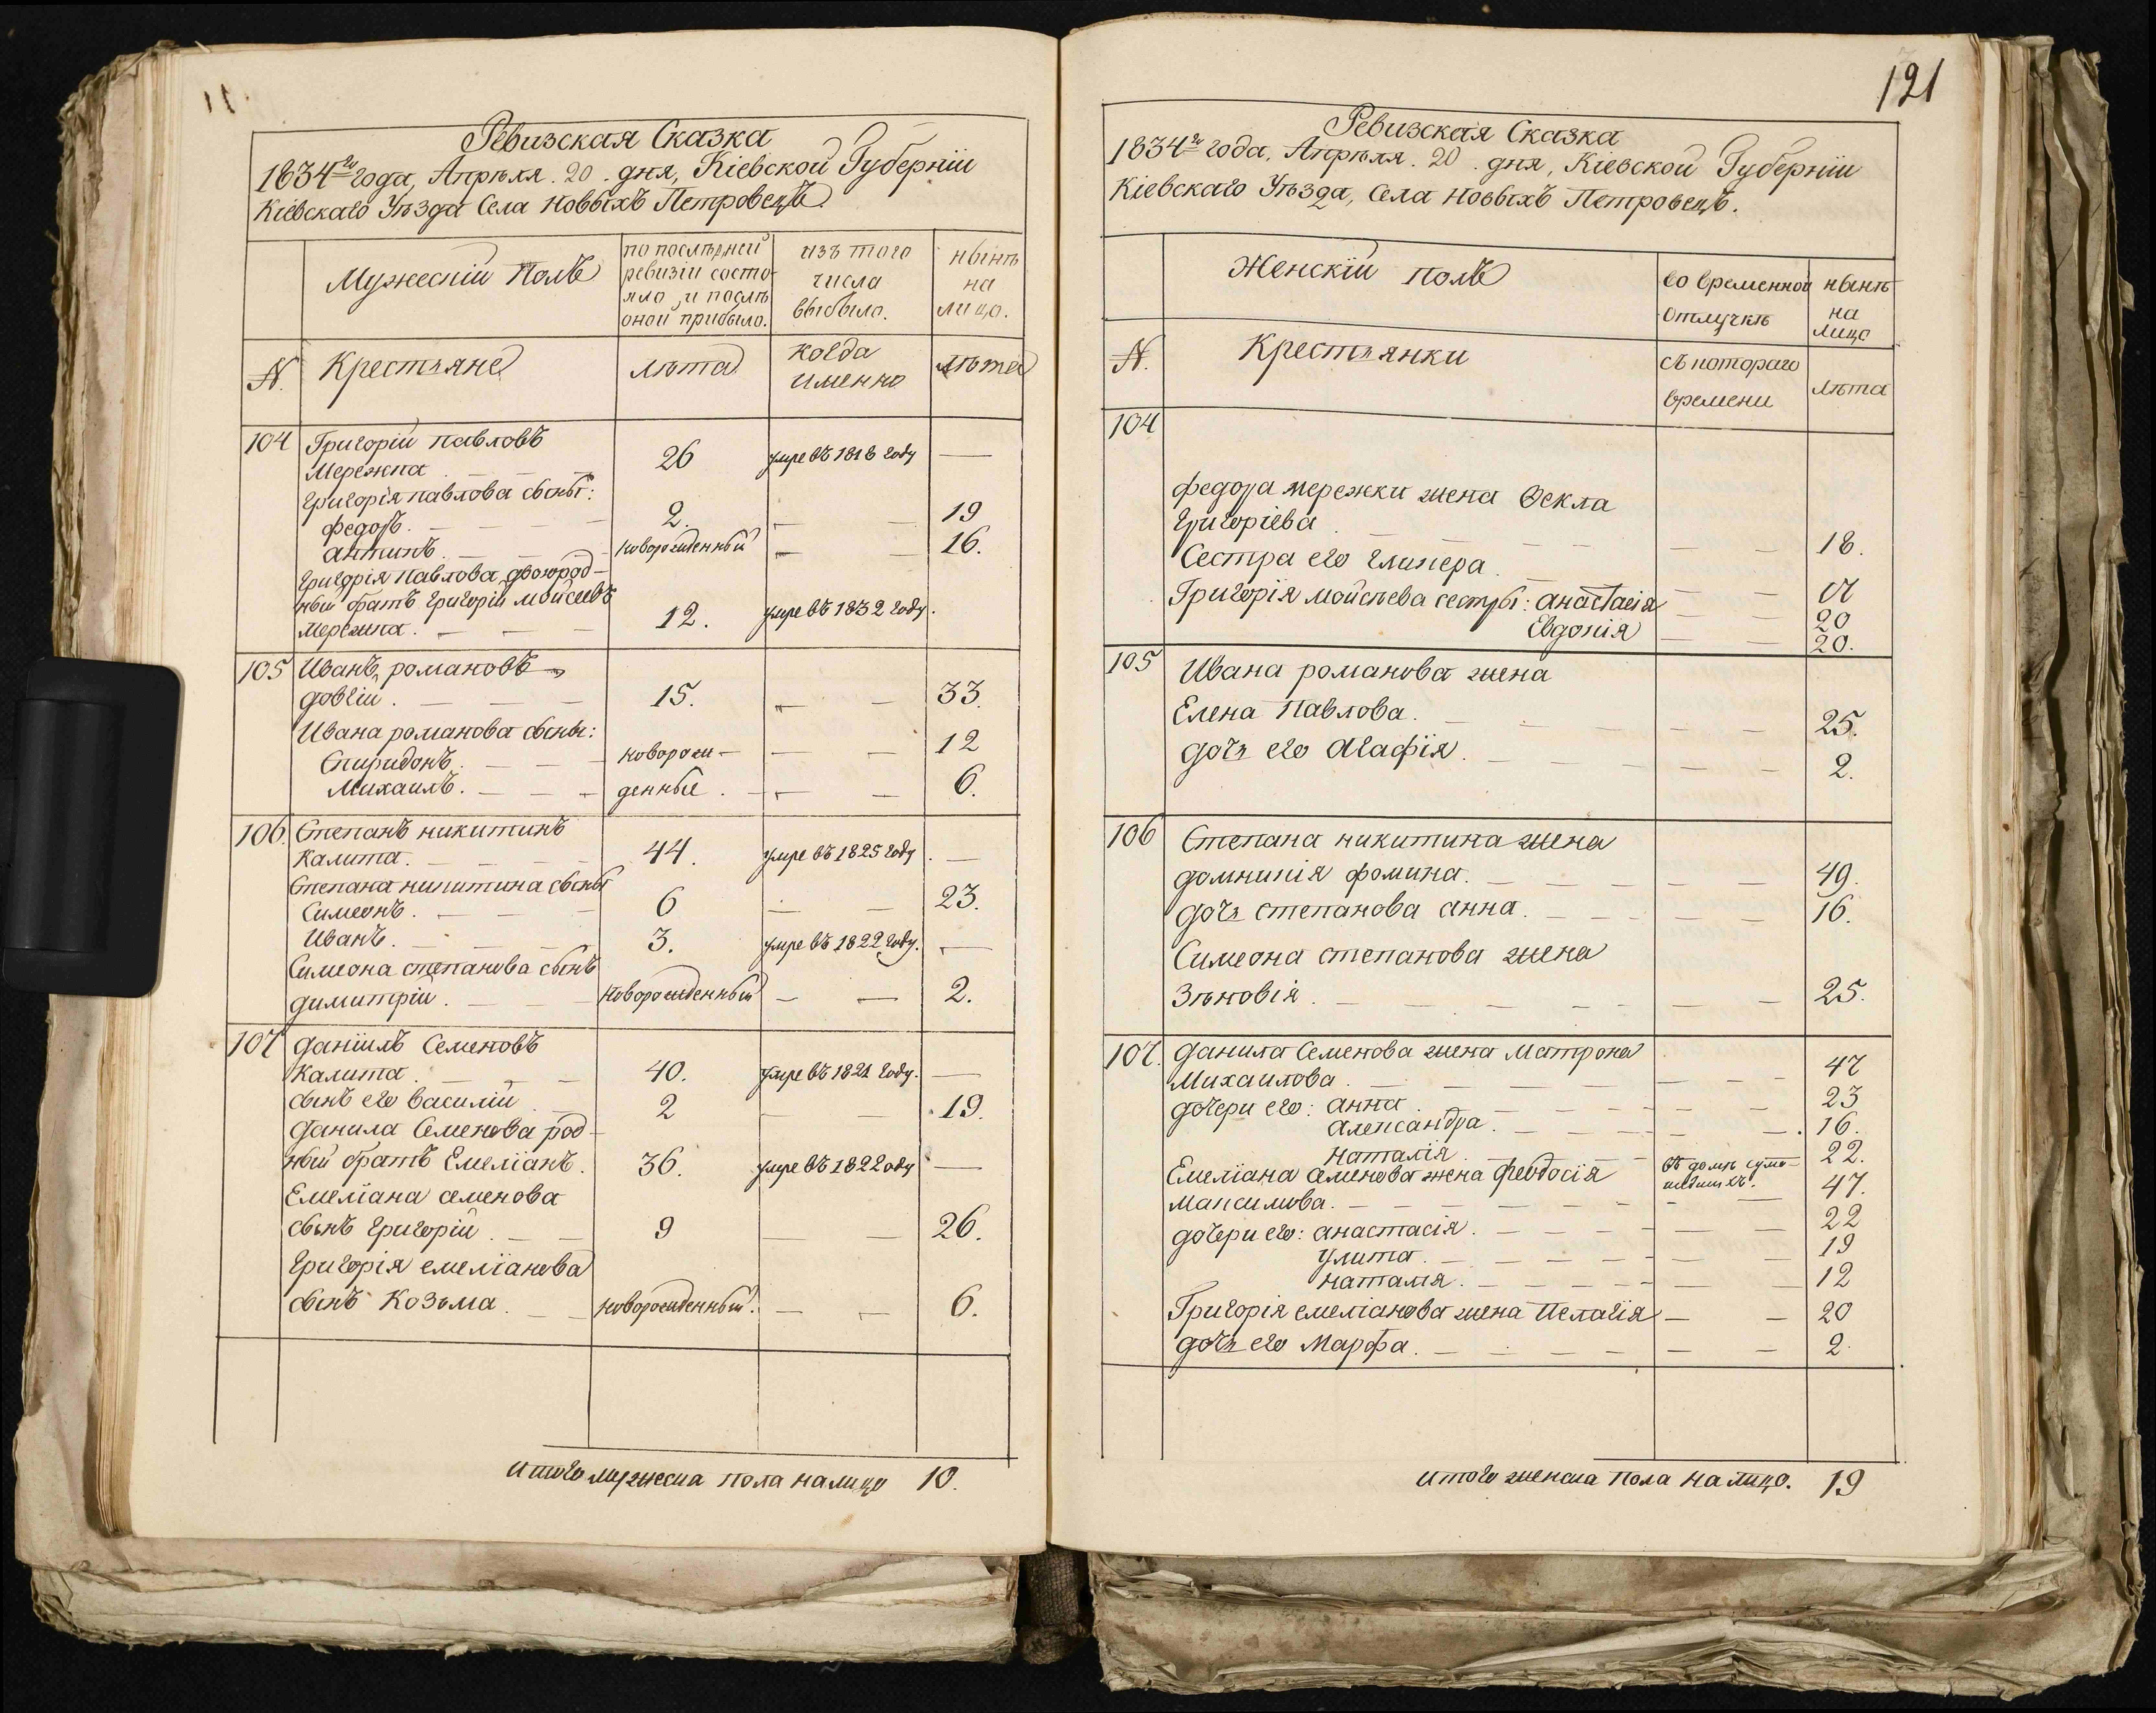 Ревизская Сказка
1834го года, Апрѣля. 20. дня, Кіевской Губерніи
Кіевскаго Уѣзда Села Новыхъ Петровецъ
Мужескій Полъ
по послѣдней
ревизіи состо-
яло, и послѣ
оной прибыло.
изъ того
числа
выбыло.
нынѣ
на
лицо.
N.
Крестьяне
лѣта
когда
именно
лѣта
104 Григорій павловъ
Мережка 26 умре въ 1818 году —
Григорія павлова сыны:
федоръ. 2. — 19
антипъ. новорожденный — 16.
Григорія павлова двоюрод-
ный братъ Григорій мойсеевъ
мережка. 12. умре въ 1832 году.
105 Иванъ романовъ
довгій. 15. — 33.
Ивана романова сыны:
Спиридонъ. новорож- — 12
Михаилъ. денные. — 6.
106. Степанъ никитинъ
Калита. 44. умре въ 1825 году. —
Степана никитина сыны
Симеонъ. 6 — 23.
Иванъ. 3. умре въ 1822 году. —
Симеона степанова сынъ
димитрій. новорожденный — 2.
107 даніилъ Семеновъ
Калита. 40. умре въ 1821 году. —
сынъ его василій 2 — 19.
данила Семенова род-
ный братъ Емеліанъ. 36. умре въ 1822 году —
Емеліана семенова
сынъ григорій. 9 — 26.
Григорія емеліанова
сынъ Козьма. новорожденный. — 6.
Итого мужеска пола налицо 10.
121
Ревизская Сказка
1834го года, Апрѣля. 20. дня, Кіевской Губерніи
Кіевскаго Уѣзда, Села Новыхъ Петровецъ.
Женскій полъ
во временной
отлучкѣ
нынѣ
на
лицо
N.
Крестьянки
съ котораго
времени
лѣта
104
федора мережки жена Фекла
григоріева — 18.
Сестра его гликера. — 17
Григорія мойсѣева сестры: анастасія — 20
Евдокія — 20.
105 Ивана романова жена
Елена Павлова. — 25.
дочь его Агафія. — 2.
106 Степана никитина жена
домникія фомина. — 49.
дочь степанова анна. — 16.
Симеона степанова жена
Зѣновія. — 25.
107. данила Семенова жена Матрона
Михаилова. — 47
дочери его: анна. — 23
александра. — 16.
наталія. — 22.
Емеліана семенова жена феодосія въ домѣ сума-
максимова. — сшедшихъ. 47.
дочери его: анастасія. — 22
улита. — 19
наталія. — 12
Григорія емеліанова жена Пелагія — 20
дочь его Марфа. — 2.
Итого женска пола на лицо. 19